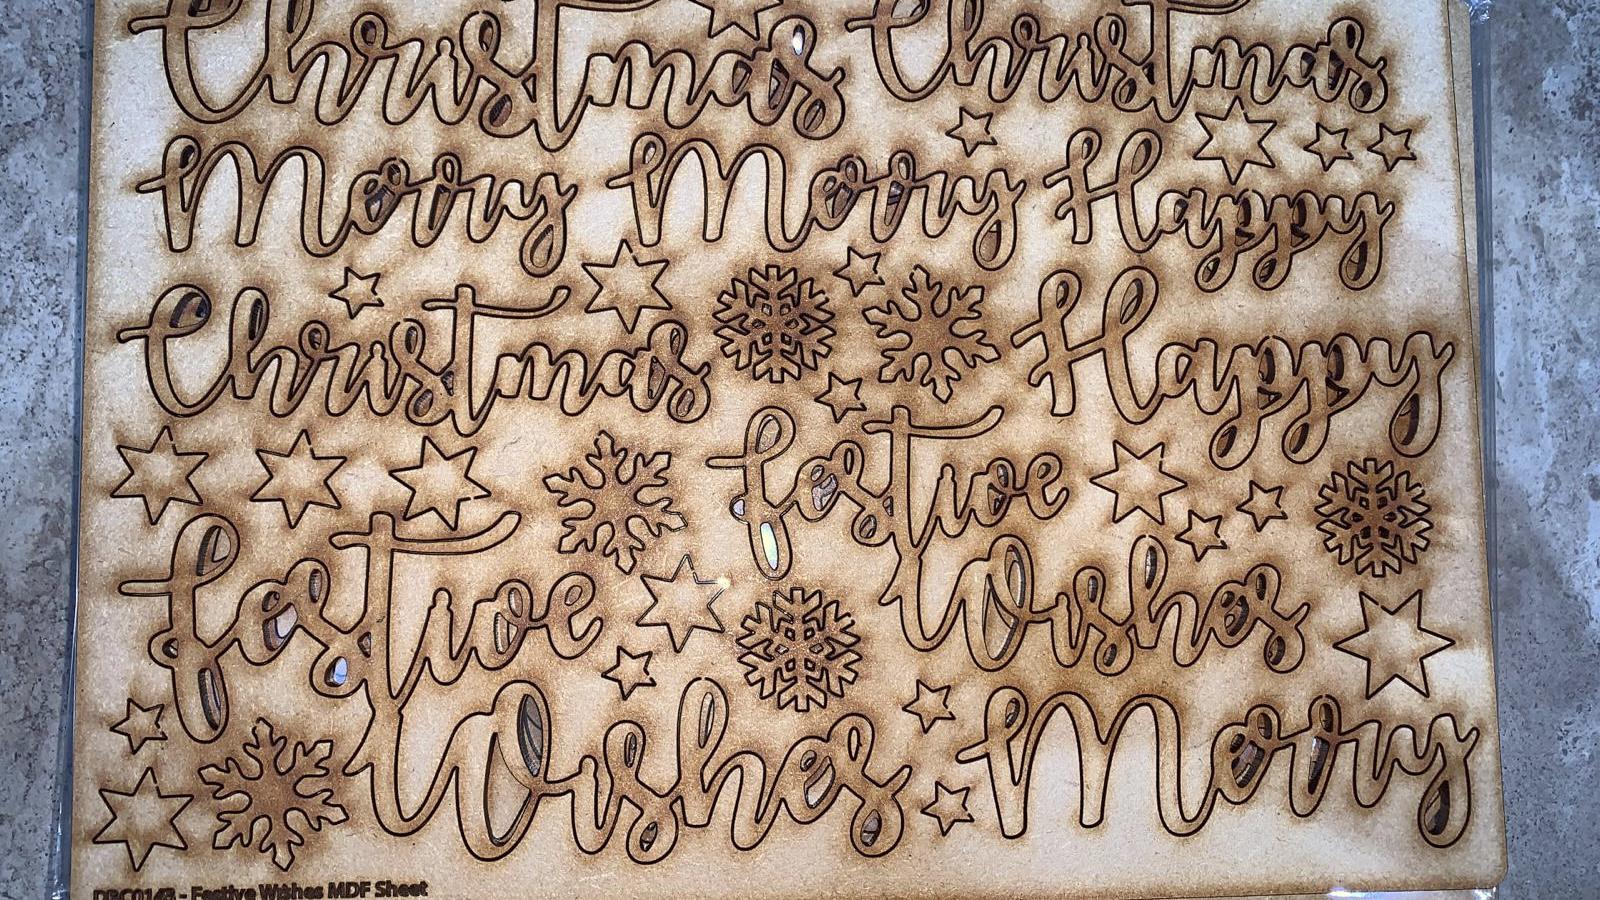 Christmas Christmas
Merry Merry Happy
Christmas Happy
festive
Wishes
festive
Wishes Merry
DBC0143 - Festive Wishes MDF Sheet